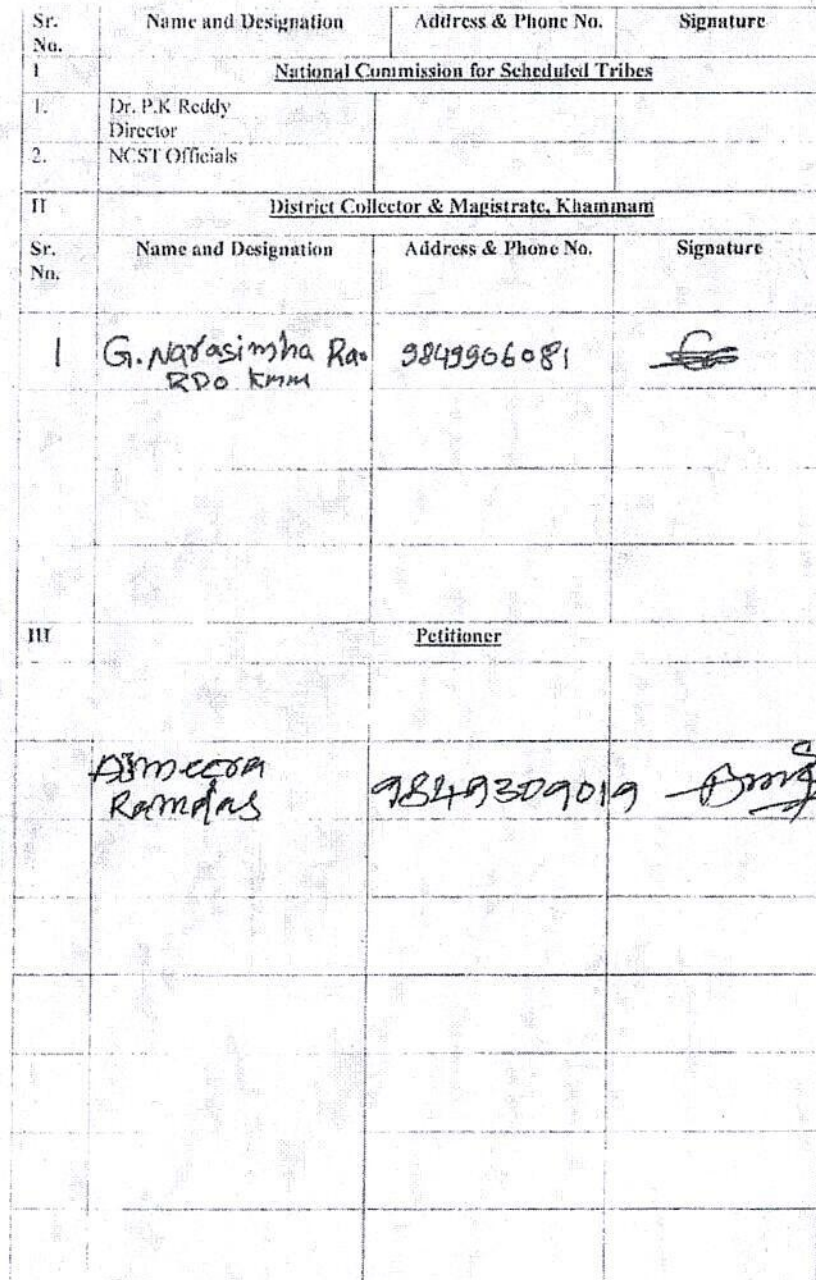 Sr. No. Name and Designation Address & Phone No. Signature
I National Commission for Scheduled Tribes
1. Dr. P.K Reddy
Director
2. NCST Officials
II District Collector & Magistrate, Khammam
Sr. No. Name and Designation Address & Phone No. Signature
1 G. Narasimha Rao 9849906081
RDO KMM
III Petitioner
Ramdas 9849309019